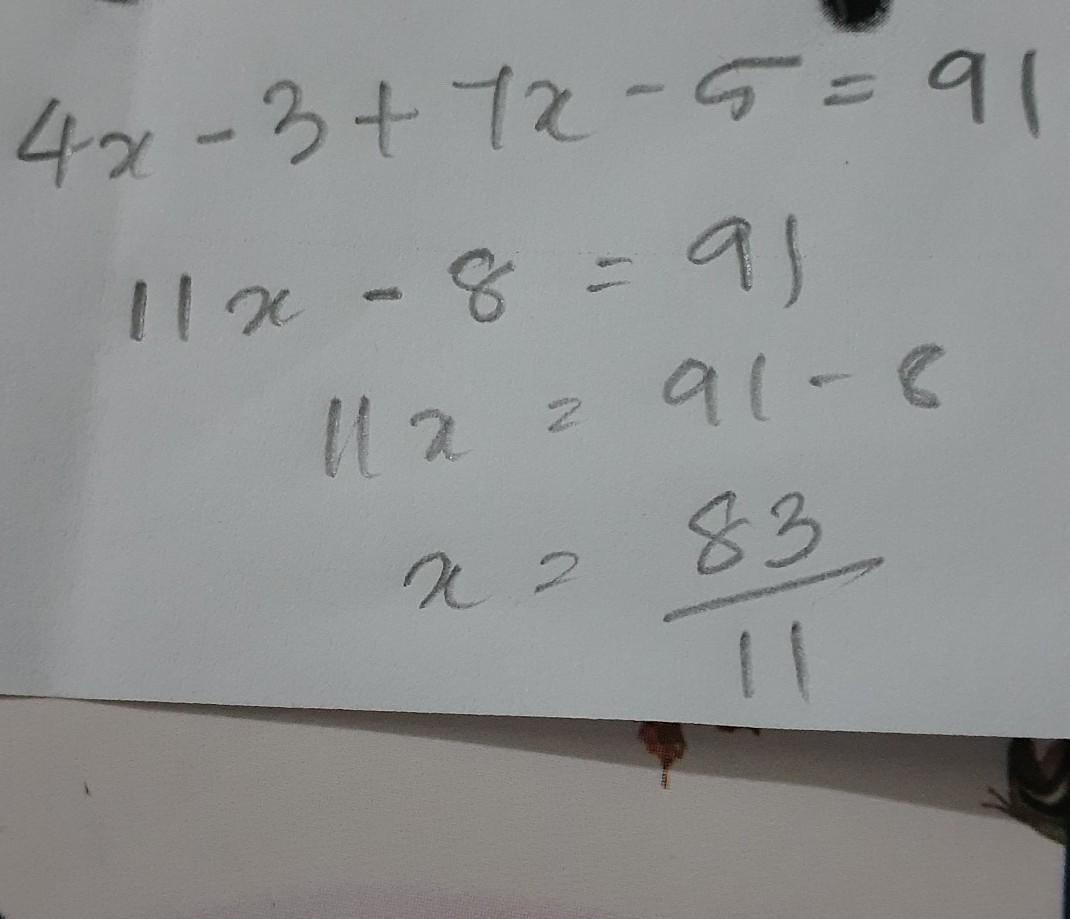 4x - 3 + 7x - 5 = 91
11x - 8 = 91
11x = 91 - 8
x = 83/11